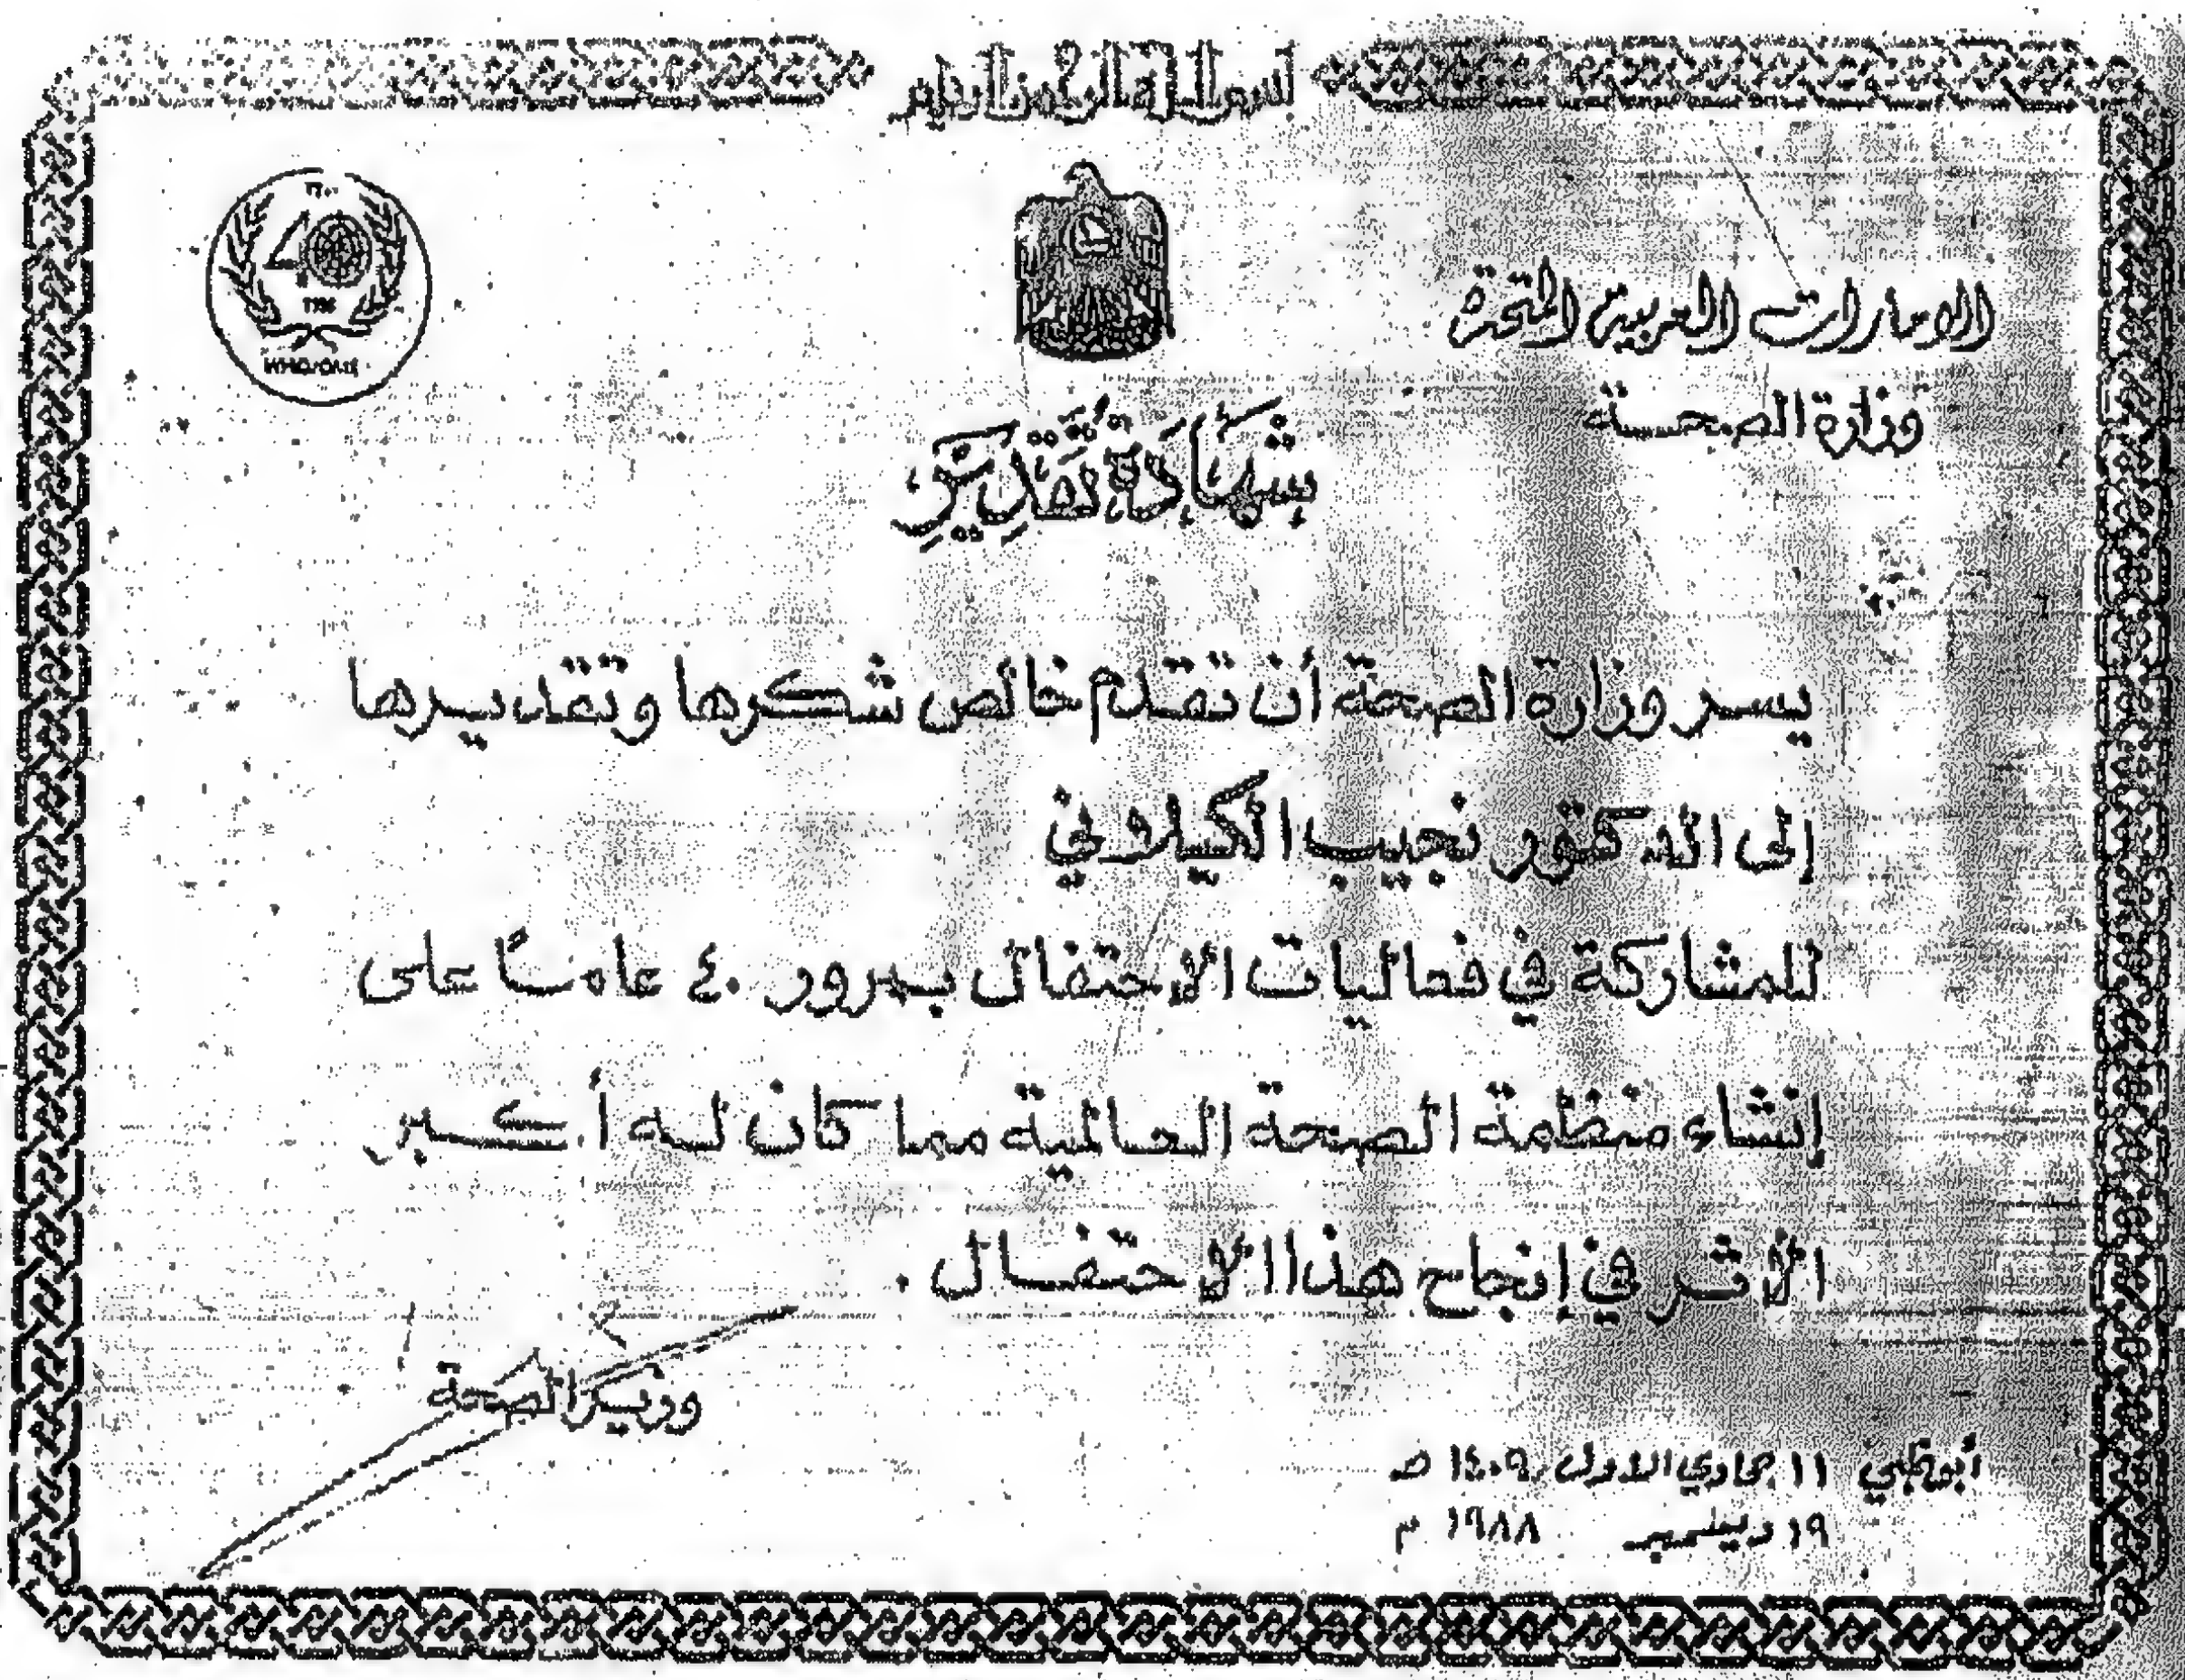 بسم الله الرحمن الرحيم
الامارات العربية المتحدة
وزارة الصحة
WHO/OMS
شَهَادَة تَقْدِيرْ
يسر وزارة الصحة أن تقدم خالص شكرها وتقديرها
إلى الدكتور نجيب الكيلاني
للمشاركة في فعاليات الاحتفال بمرور ٤٠ عامًا على
إنشاء منظمة الصحة العالمية مما كان له أكبر
الأثر في إنجاح هذا الاحتفال .
وزير الصحة
أبوظبي ١١ جمادي الاول ١٤٠٩ هـ
١٩ ديسمبر ١٩٨٨ م